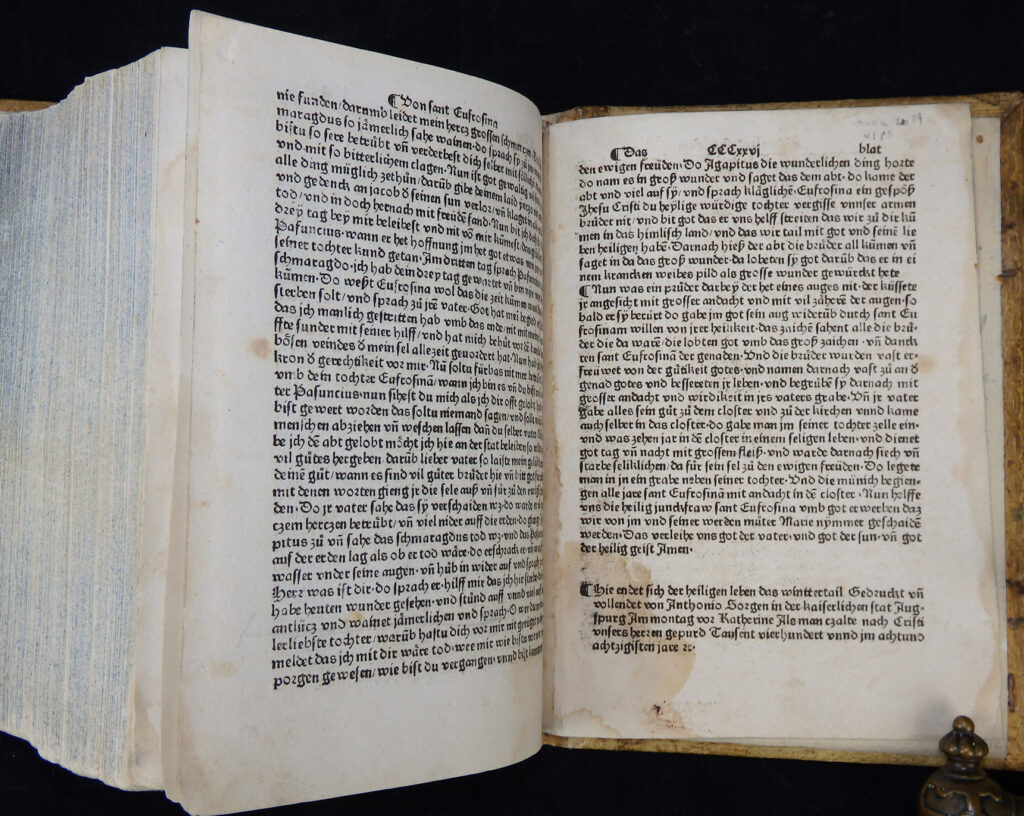 ¶Von sant Eufrosina
nie funden/darumb leidet mein hertz grossen schmertzen
maragdus so jämerlich sahe wainen·do sprach sy zů
bistu so sere betrübt vn̄ verderbest dich selber mit
vnd mit so bitterlichem clagen·Nun ist got gewaltig
alle ding müglich zethůn/darūb gibe deinem laid
vnd gedenck an jacob d̄ seinen sun verlor/vn̄ klaget in
tod/vnd in doch hernach mit freüdē fand·Nun bit ich dich
drey tag bey mir beleibest vnd nit vō mir kūmest·das
Pafuncius·wann er het hoffnung jm het got etwas von
seiner tochter kund getan·Am dritten tag sprach Pafuncius
schmaragdo·jch hab dein drey tag gewartet vn̄ bin
kūmen·Do weßt Eufrosina wol das die zeit kūmen was
sterben solt/vnd sprach zů jrē vater·Got hat mei
das jch manlich gestritten hab vmb das ende·nit mit mein
ffte sunder mit seiner hilff/vnd hat mich behůt vor
bösen veindes d̄ mein sel allezeit geuordert hat·Nun hab
kron d̄ gerechtikeit vor mir·Nū soltu fürbas nit mer
vmb dein tochter Eufrosinā/wann jch bin es vn̄ du bist
ter Pafuncius·nun sihest du mich als jch dir offt gelobt
bist gewert worden das soltu niemand sagen/vnd solt
menschen abziehen vn̄ weschen lassen dan̄ du selber vater·
be jch dē abt gelobt möcht jch hie an der stat beleiben so
vil gůtes hergeben·darūb lieber vater so laiste mein
deinē gůt/wann es sind vil gůter brůder hie vn̄ bitt got
mit denen worten gieng jr die sele auß vn̄ fůr zů den ewigen
den·Do jr vater sahe das sy verschaiden wz·do warde er
czem herczen betrübt/vn̄ viel nider auff die erden·do gieng
pitus zů vn̄ sahe das schmaragdus tod wz·vnd das
auf der erden lag als ob er tod wäre·do erschrack er·
wasser vnder seine augen·vn̄ hůb in wider auf vnd sprach
Herr was ist dir·do sprach er·hilff mir das jch hie sterbe
habe heuten wunder gesehen·vnd stůnd auff vnd viel
antlücz vnd wainet jämerlichen vnd sprach·O wee du
lerliebste tochter/warūb hastu dich vor mir nit
meldet das jch mit dir wäre tod·wee mir wie bistu
porgen gewesen/wie bist du vergangen·vnnd bist
¶Das CCCxxvj blat
den ewigen freüden·Do Agapitus die wunderlichen ding horte
do nam es in groß wunder vnd saget das dem abt·do kame der
abt vnd viel auf sy/vnd sprach klägliche·Eufrosina ein gespōß
Jhesu Cristi du heylige würdige tochter vergisse vnnser armen
brůder nit/vnd bit got das er vns helff streiten das wir zů dir kū
men in das himlisch land/vnd das wir tail mit got vnd seinē lie
ben heiligen habē·Darnach hieß der abt die brůder all kūmen vn̄
saget in da das groß wunder·da lobeten sy got darūb das er in ei
nem krancken weibes pild als grosse wunder gewürckt hete
¶Nun was ein průder darbey der het eines auges nit·der küssete
jr angesicht mit grosser andacht vnd mit vil zähern der augen·so
bald er sy berürt do gabe jm got sein aug widerüb durch sant Eu
frosinam willen von jrer heilikeit·das zaichē sahent alle die brů/
der die da warē/die lobten got vmb das groß zaichen·vn̄ danck
ten sant Eufrosinā der genaden·Vnd die brůder wurden vast er/
freüwet von der gůtikeit gotes·vnd namen darnach vast zů an d̄
genad gotes vnd besserten jr leben·vnd begrůbē sy darnach mit
grosser andacht vnd wirdikeit in jrs vaters grabe·Vn̄ jr vater
gabe alles sein gůt zů dem closter vnd zů der kirchen vnnd kame
auch selber in das closter·do gabe man jm seiner tochter zelle ein·
vnd was zehen jar in dē closter in einem seligen leben·vnd dienet
got tag vn̄ nacht mit grossem fleiß·vnd warde darnach siech vn̄
starbe seliklichen/da fůr sein sel zů den ewigen freüden·Do legete
man in jn ein grabe neben seiner tochter·Vnd die münich begien/
gen alle jare sant Eufrosinā mit andacht in dē closter·Nun helffe
vns die heilig junckfraw sant Eufrosina vmb got erwerben daz
wir von jm vnd seiner werden můter Marie nymmer geschaidē
werden·Das verleihe vns got der vater·vnd got der sun·vn̄ got
der heilig geist Amen·
¶Hie endet sich der heiligen leben das winttertail Gedruckt vn̄
vollendet von Anthonio Sorgen in der kaiserlichen stat Aug/
spurg Am montag vor Katherine Als man czalte nach Cristi
vnsers herren gepurd Tausent vierhundert vnnd jm achtund
achtzigisten jare ꝛc·